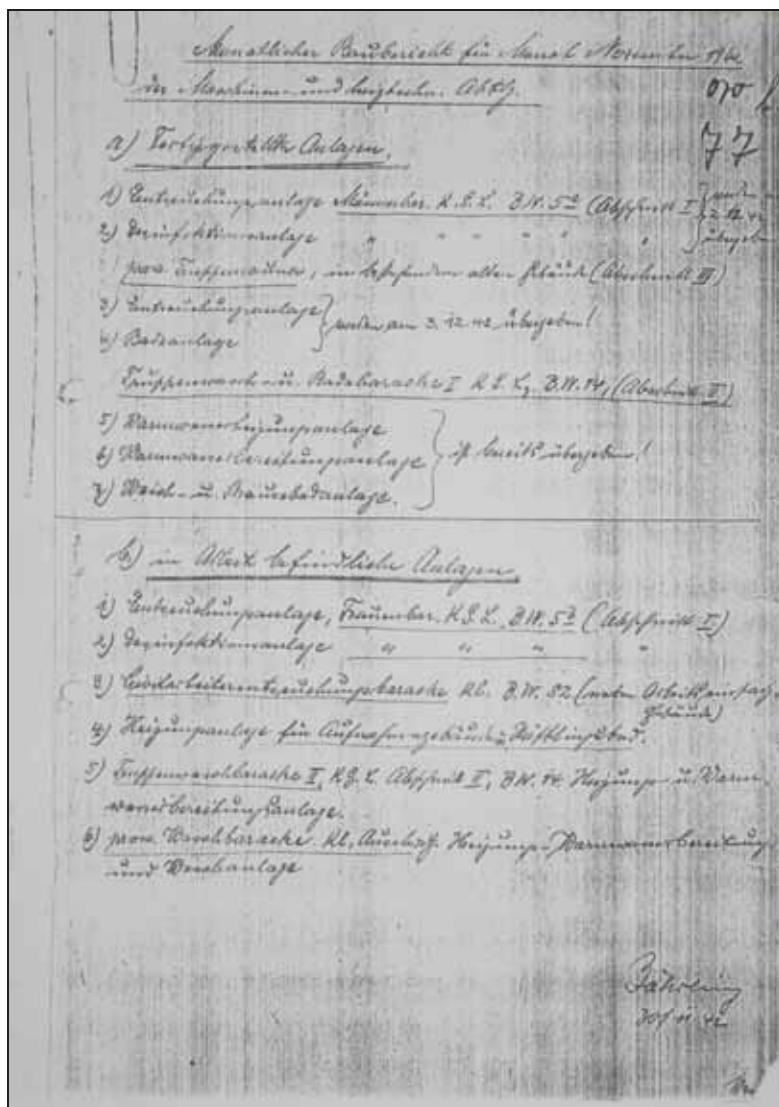 Monatlicher Baubericht für Monat November 1942
der Maschinen- und heiztechn. Abtlg.
77
a) Fertiggestellte Anlagen.
1) Entwesungsanlage Männerbar. K.G.L. B.W. 5a (Abschnitt I) werden 2.12.42 übergeben
2) Desinfektionsanlage " " " " " "
prov. Truppensauna, im bestehenden alten Gebäude (Abschnitt III)
3) Entwesungsanlage
4) Badeanlage
werden am 3.12.42 übergeben!
Truppenwasch- u. Badebaracke I K.G.L, B.W. 14, (Abschnitt II)
5) Warmwasserheizungsanlage
6) Warmwasserbereitungsanlage
7) Wasch- u. Brausebadanlage.
ist bereits übergeben!
b.) in Arbeit befindliche Anlagen.
1) Entwesungsanlage, Frauenbar. K.G.L. B.W. 5b (Abschnitt I)
2) Desinfektionsanlage " " " "
3) Zivilarbeiterentwesungsbaracke KL. B.W. 52 (neben Arbeitseinsatz
Gebäude)
4) Heizungsanlage für Aufnahmegebäude, Häftlingsbad.
5) Truppenwaschbaracke II, K.G.L. Abschnitt II, B.W. 14 Heizungs- u. Warm-
wasserbereitungsanlage.
6) prov. Waschbaracke KL, Auschwitz. Heizungs- Warmwasserbereitungs-
und Waschanlage
Jährling
30/11.42